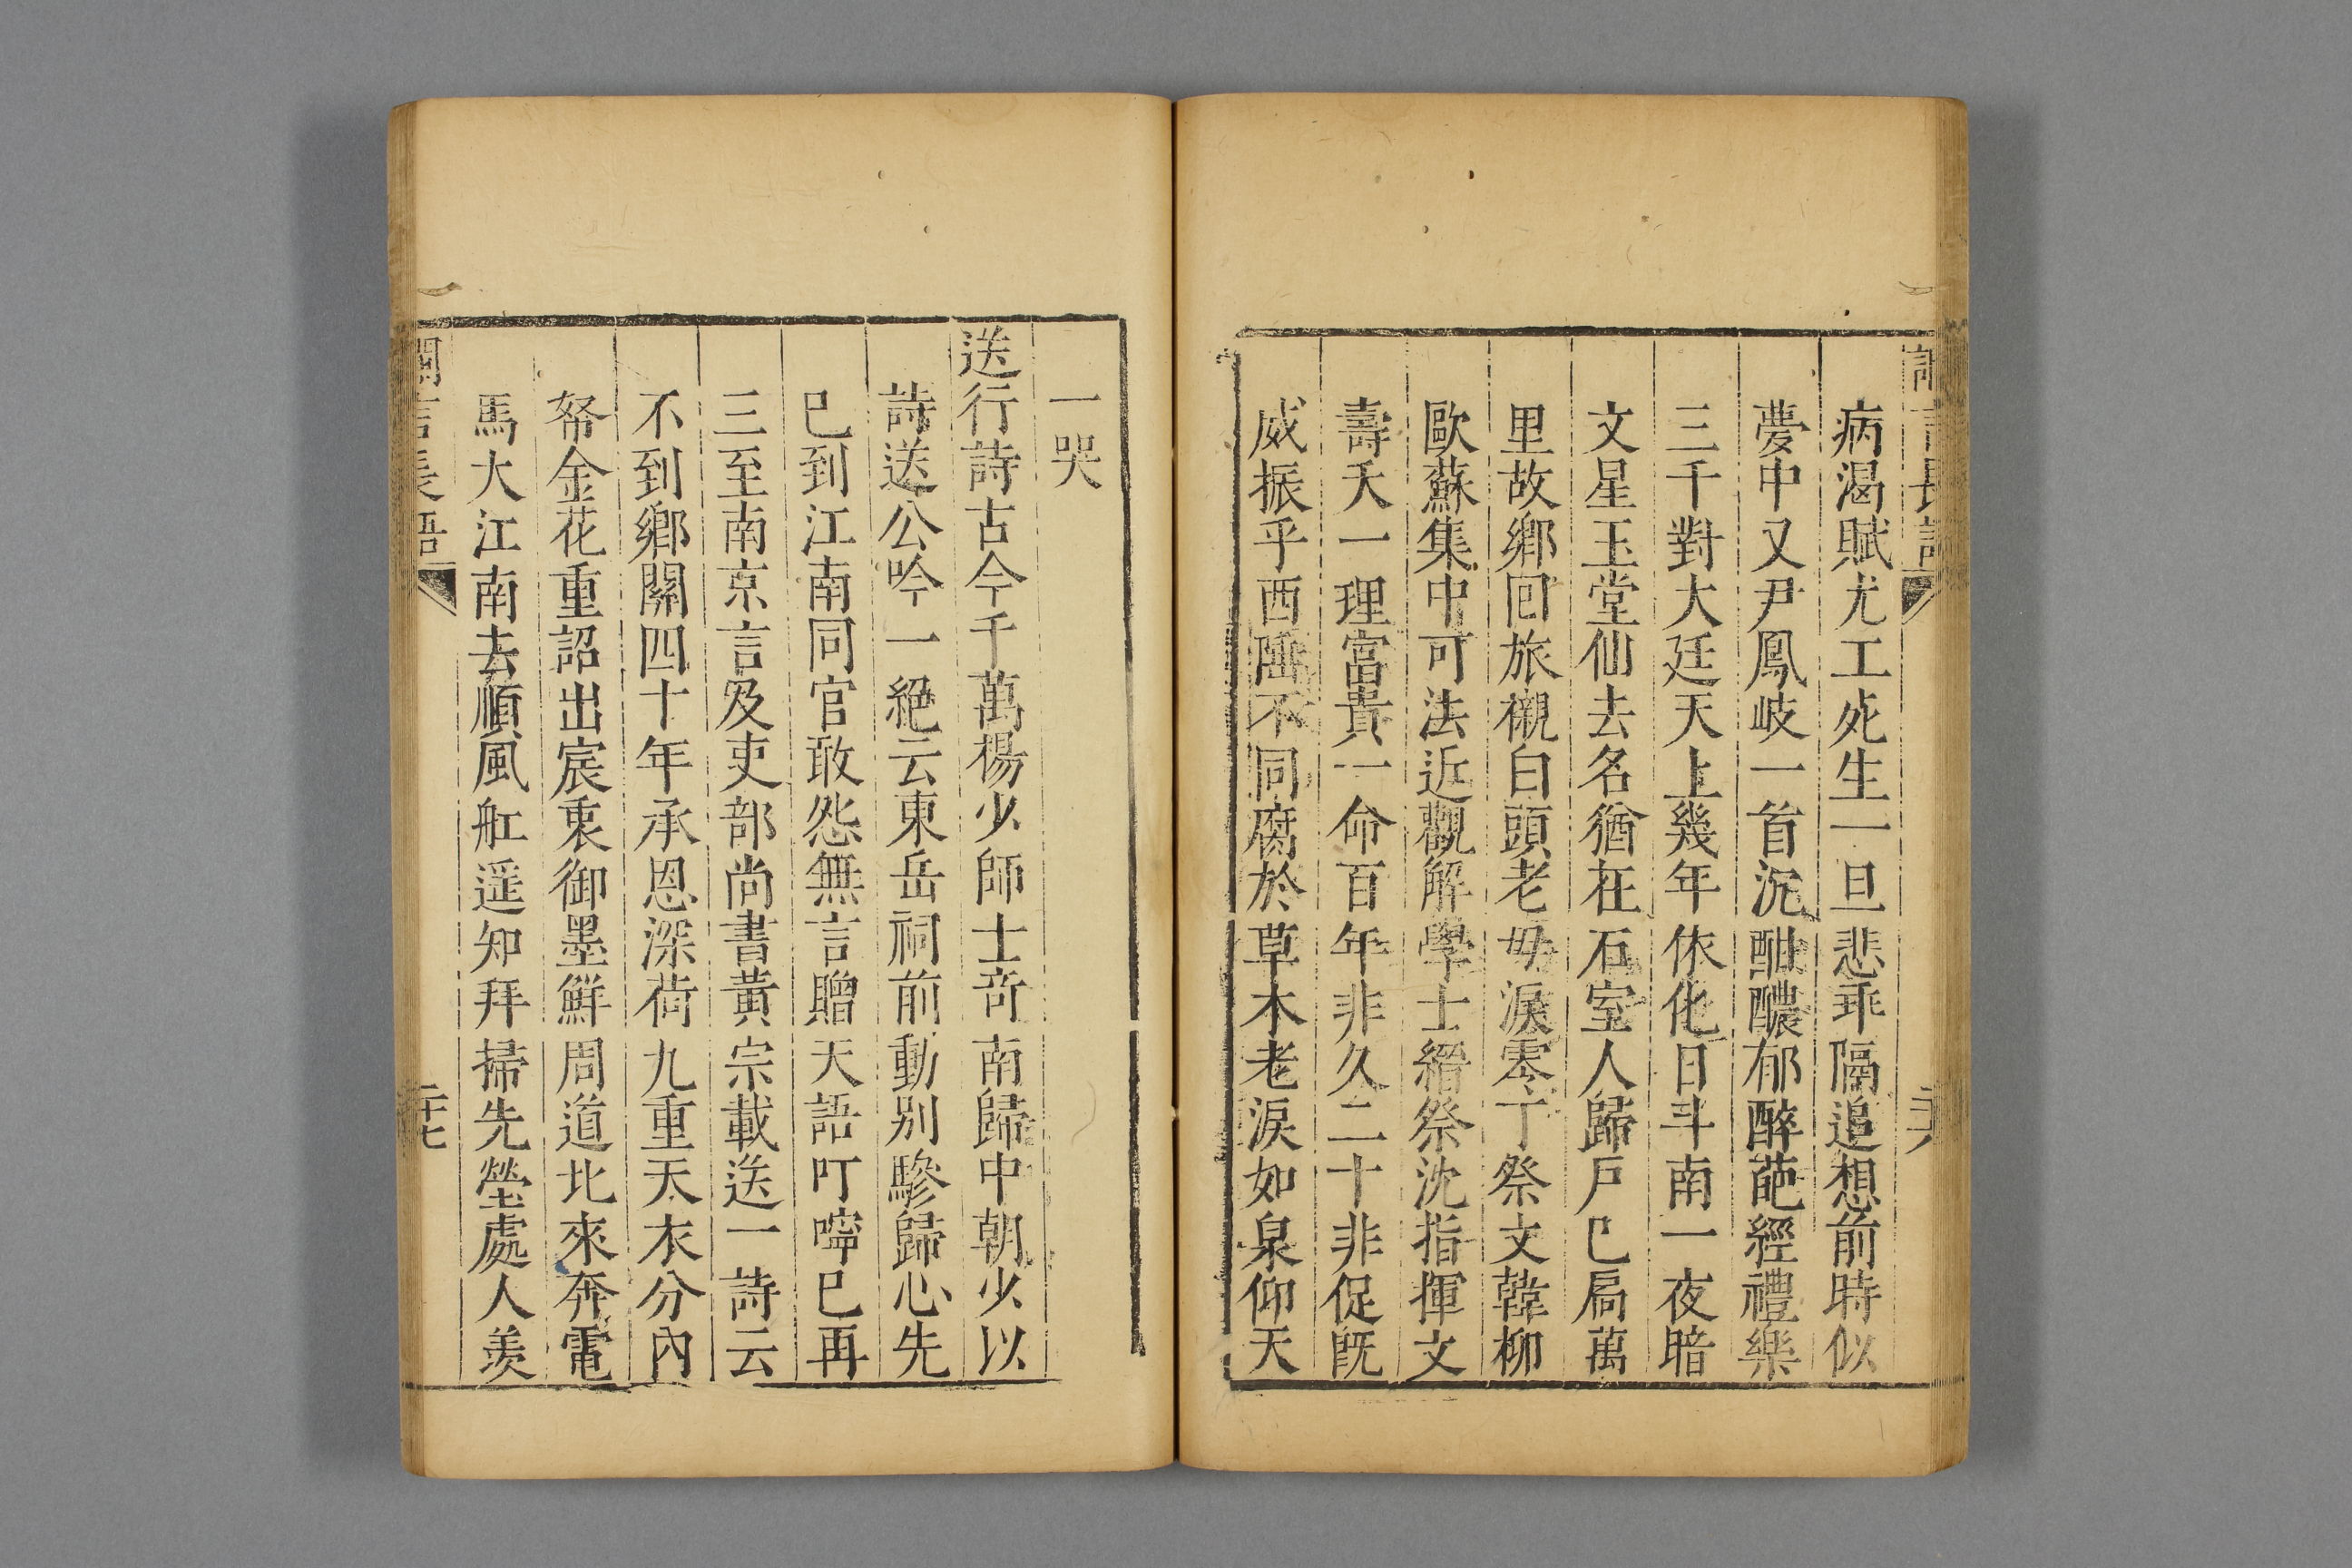 病渴賦尤工死生一旦悲乖隔追想前時似
夢中又尹鳳岐一首沉酣醲郁醉葩經禮樂
三千對大廷天上幾年依化日斗南一夜暗
文星玉堂仙去名猶在石室人歸戶已扃萬
里故鄉囘旅櫬白頭老母淚零丁祭文韓柳
歐蘇集中可法近觀解學士縉祭沈指揮文
壽夭一理富貴一命百年非久二十非促旣
威振乎西陲不同腐於草木老淚如泉仰天
一哭
送行詩古今千萬楊少師士竒南歸中朝少以
詩送公吟一絕云東岳祠前動別驂歸心先
已到江南同官敢怨無言贈天語叮嚀已再
三至南京言及吏部尚書黃宗載送一詩云
不到鄉關四十年承恩深荷九重天衣分內
帑金花重詔出宸衷御墨鮮周道北來奔電
馬大江南去順風舡遥知拜掃先塋處人羨
閒言長語
二十七